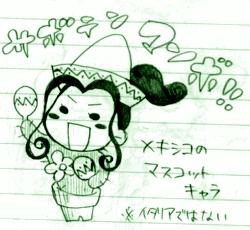 サボテン
マンボ!!
メキシコの
マスコット
キャラ
※イタリアではない